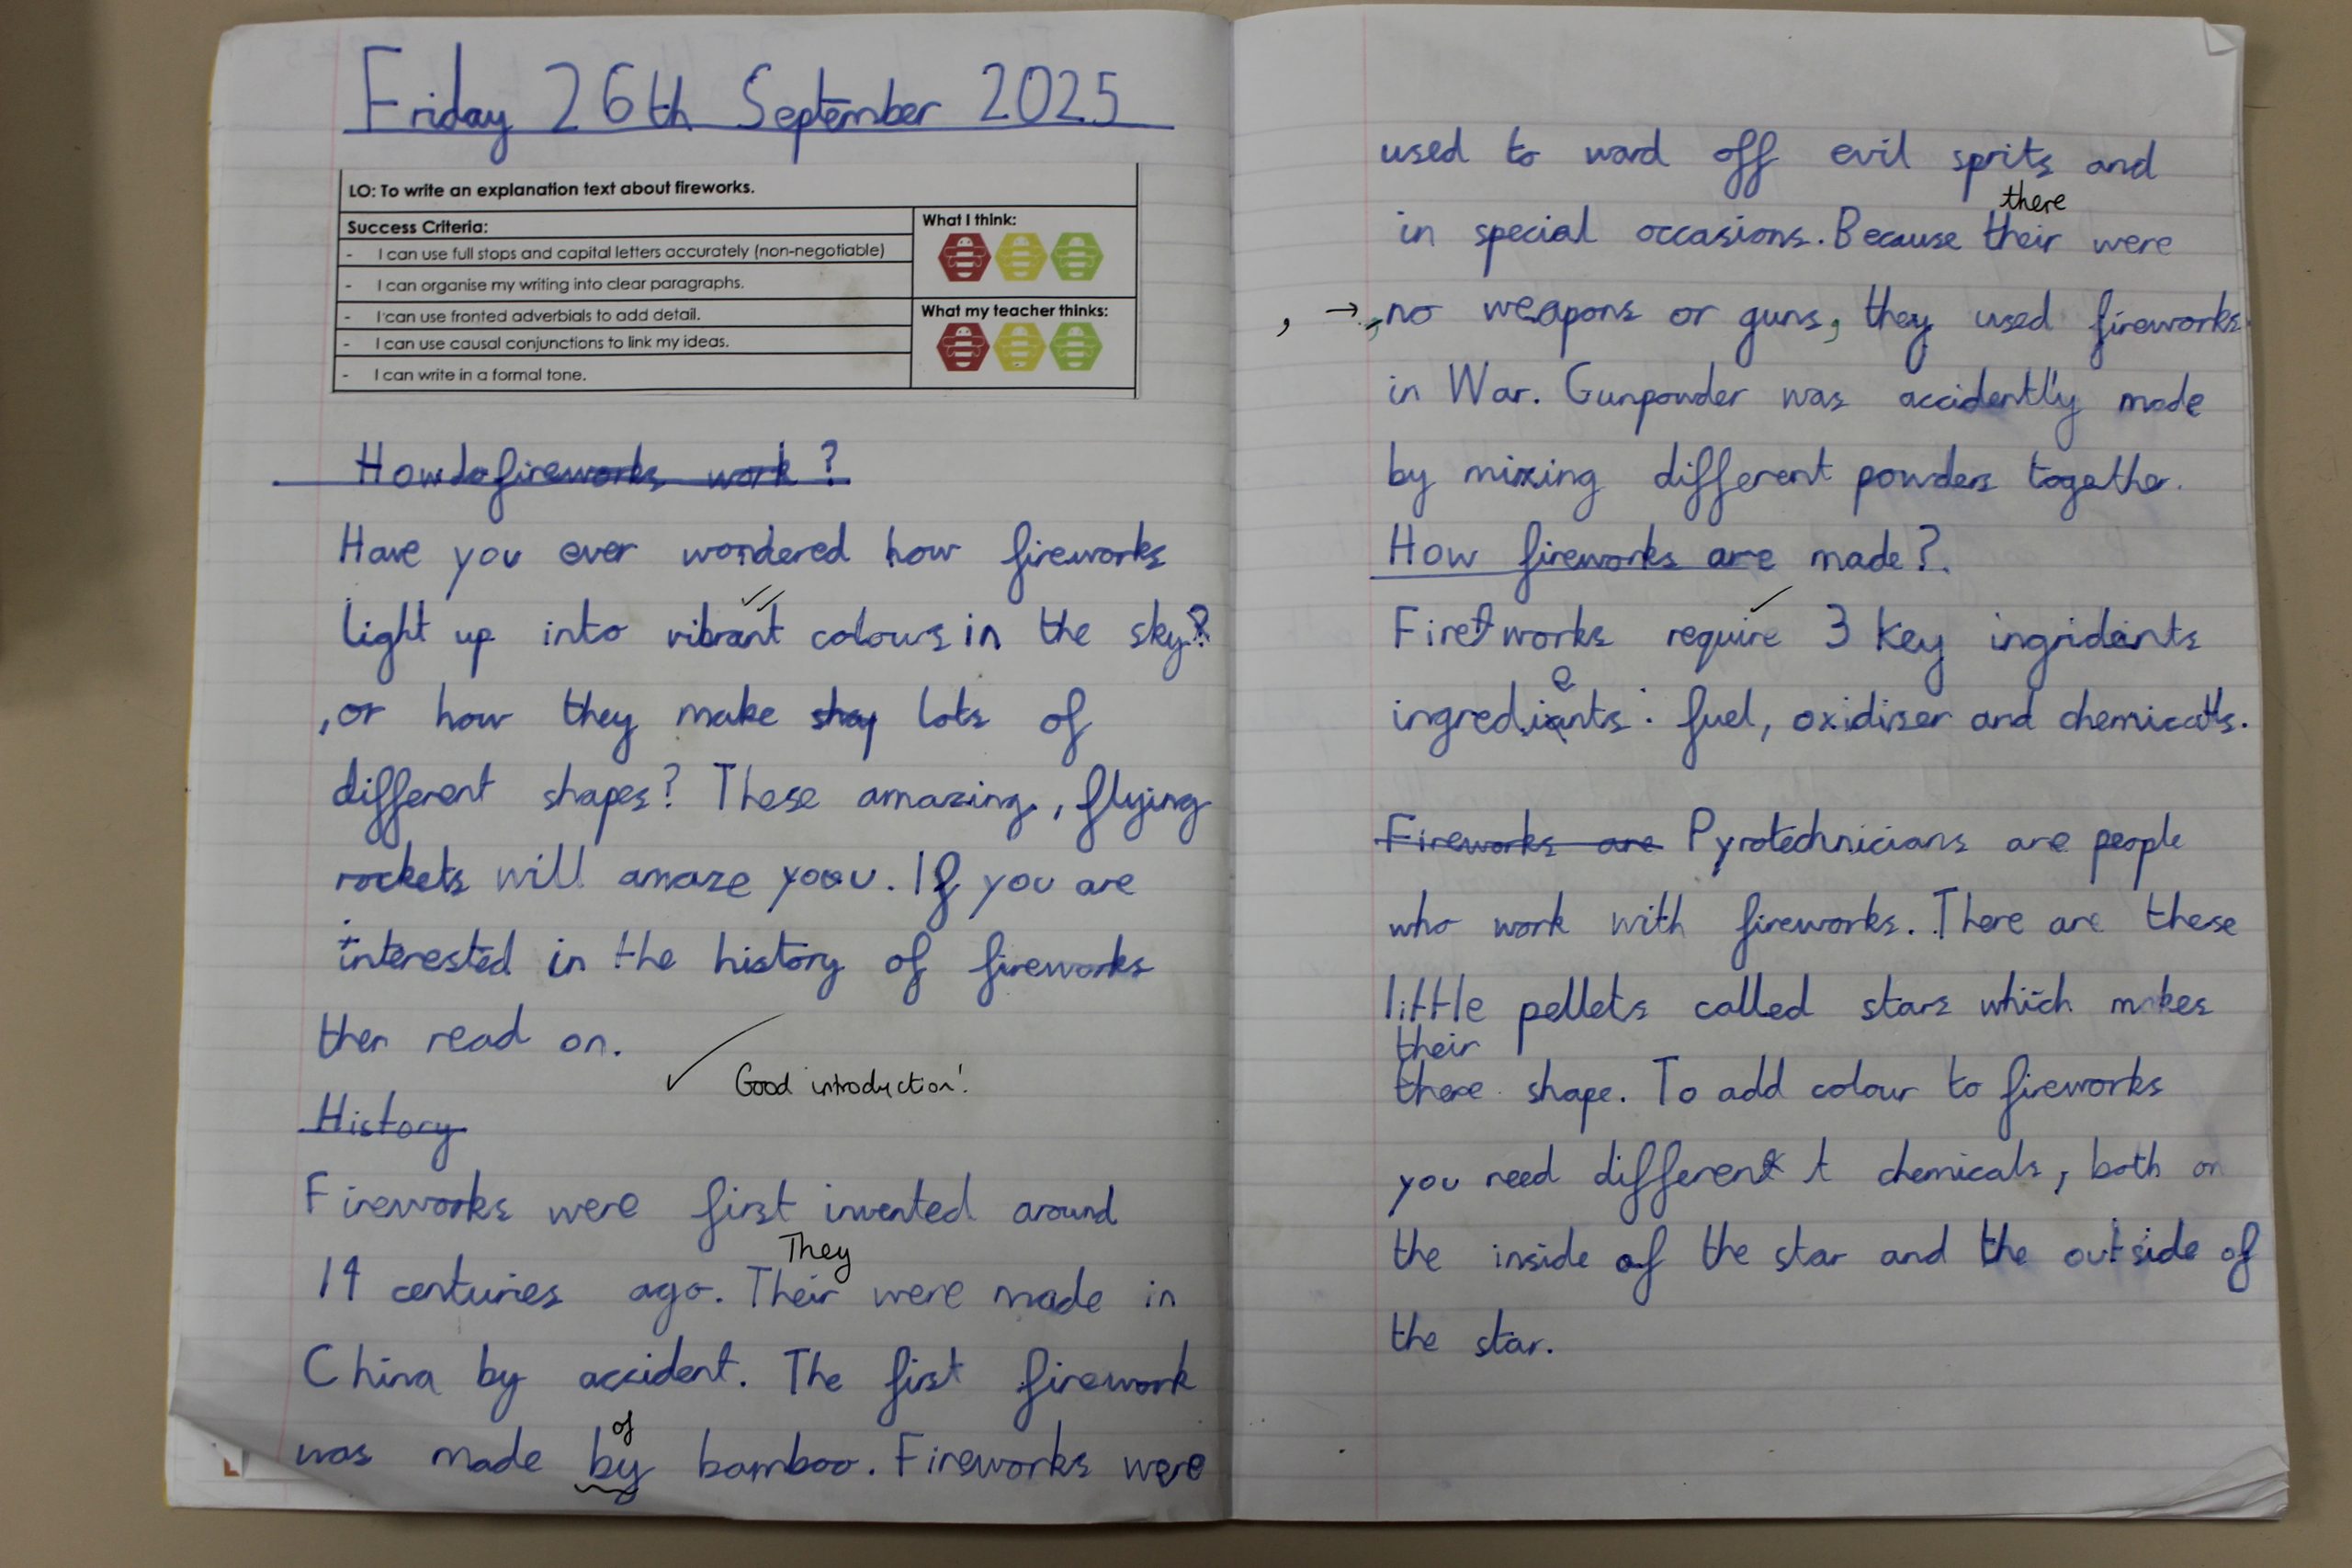 Friday 26th September 2025
LO: To write an explanation text about fireworks.
Success Criteria:
- I can use full stops and capital letters accurately (non-negotiable)
- I can organise my writing into clear paragraphs.
- I can use fronted adverbials to add detail.
- I can use causal conjunctions to link my ideas.
- I can write in a formal tone.
What I think:
What my teacher thinks:
How do fireworks work?
Have you ever wondered how fireworks
light up into vibrant colours in the sky?
, or how they make shay lots of
different shapes? These amazing, flying
rockets will amaze you. If you are
interested in the history of fireworks
then read on.
Good introduction!
History
Fireworks were first invented around
They
14 centuries ago. Their were made in
China by accident. The first firework
of
was made by bamboo. Fireworks were
used to ward off evil sprits and
there
in special occasions. Because their were
, → , no weapons or guns, they used fireworks
in War. Gunpowder was accidently made
by mixing different powders together.
How fireworks are made?.
Fireworks require 3 key ingridants
e
ingrediants: fuel, oxidiser and chemicals.
Fireworks are Pyrotechnicians are people
who work with fireworks. There are these
little pellets called stars which makes
their
there shape. To add colour to fireworks
you need different t chemicals, both on
the inside of the star and the outside of
the star.